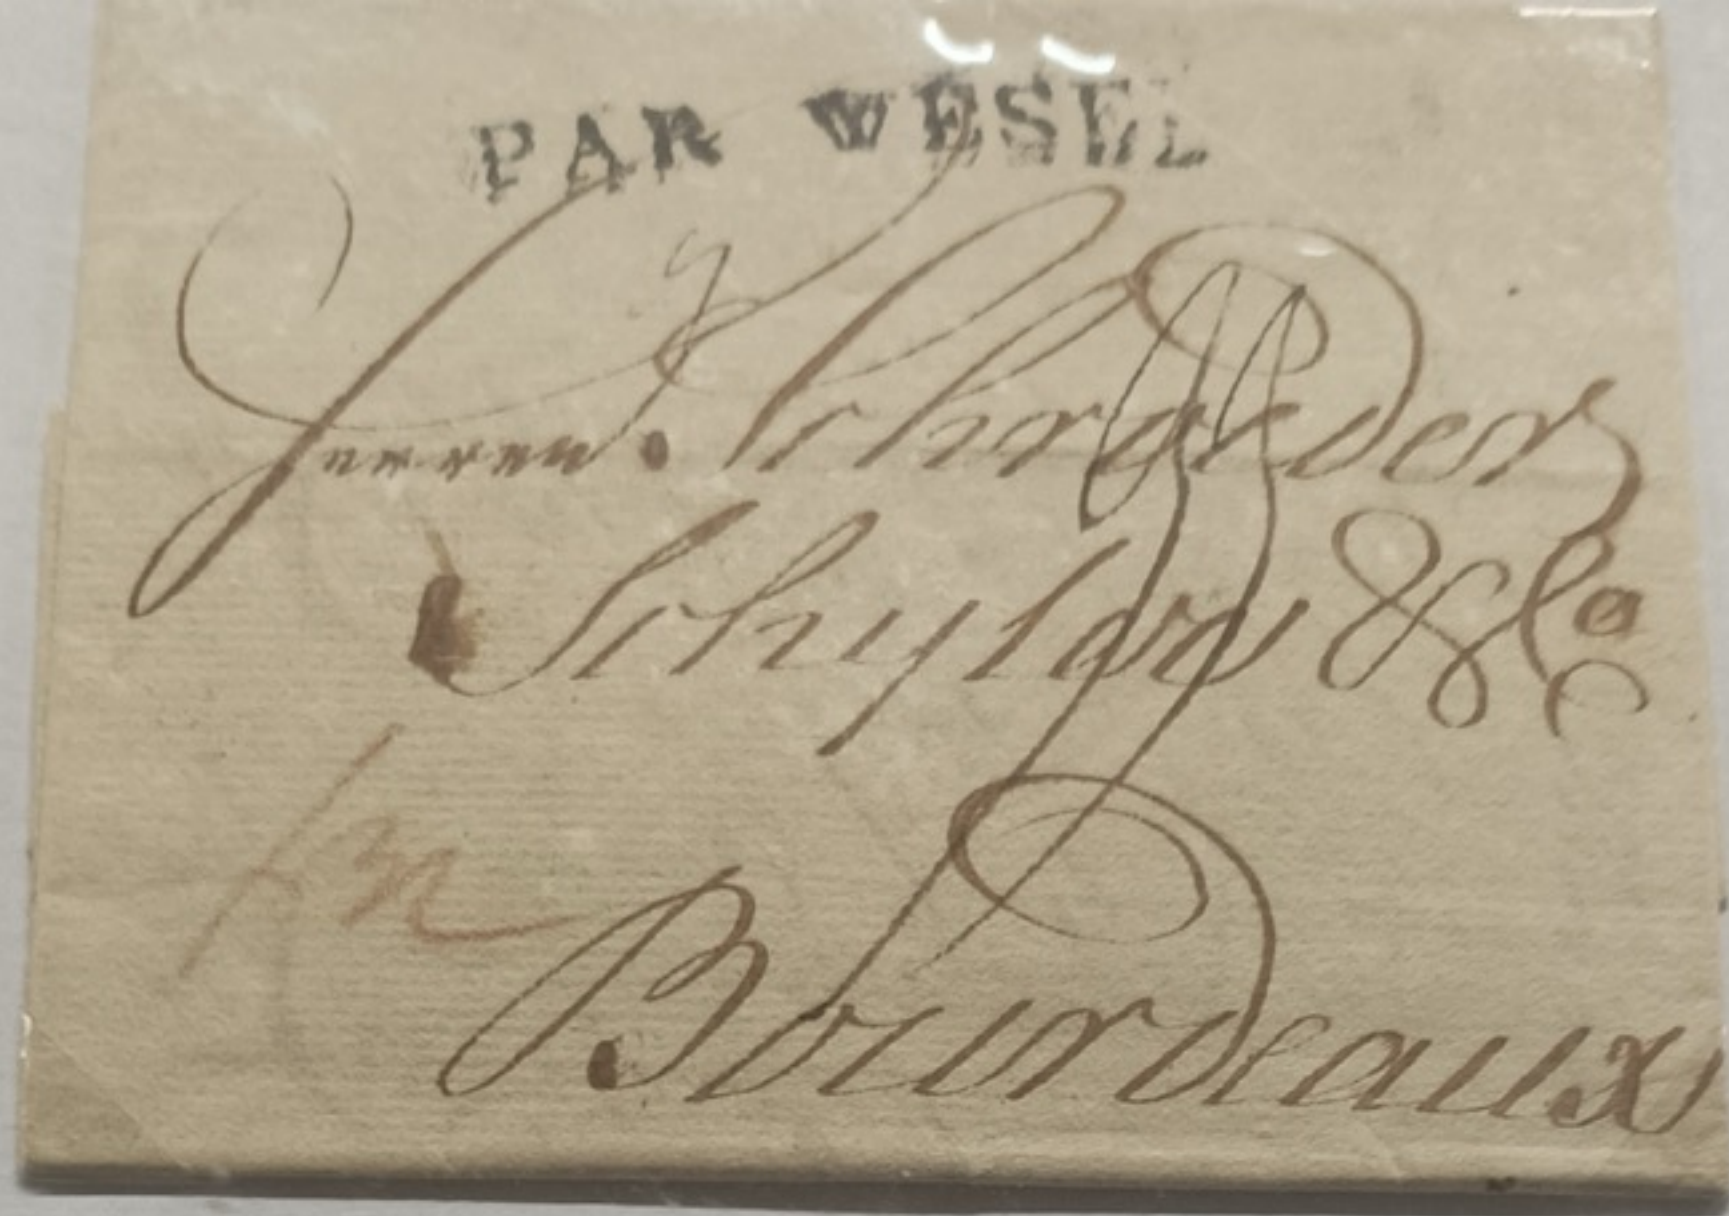 PAR WESEL
Herren. Schröder
Schyler & Co
Bourdeaux